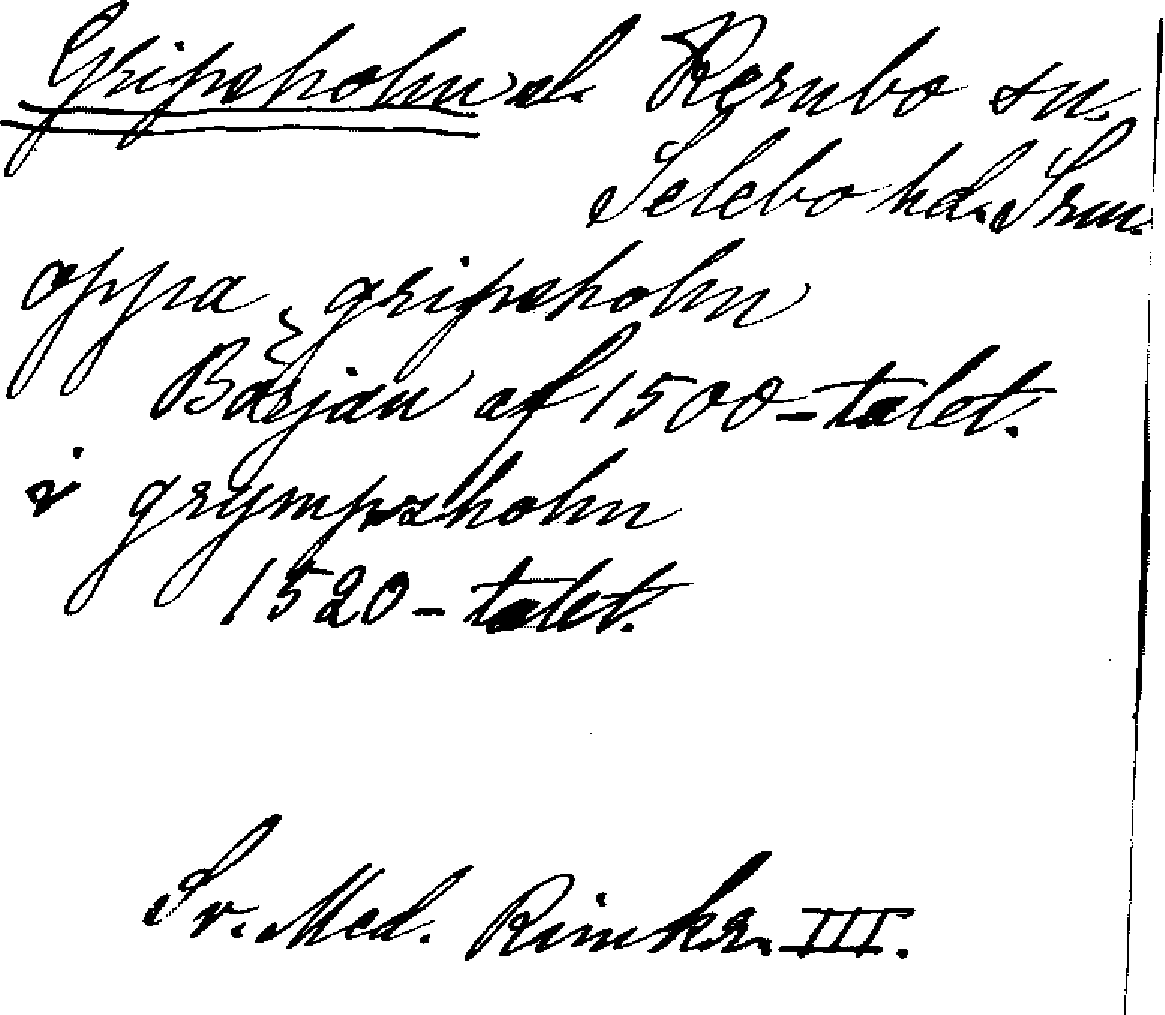 Gripsholm sl. Kärnbo sn.
Selebo hd. Srm.
oppa gripsholm
Början af 1500-talet.
i grympsholm
1520-talet.
Sv. Med. Rimkr. III.